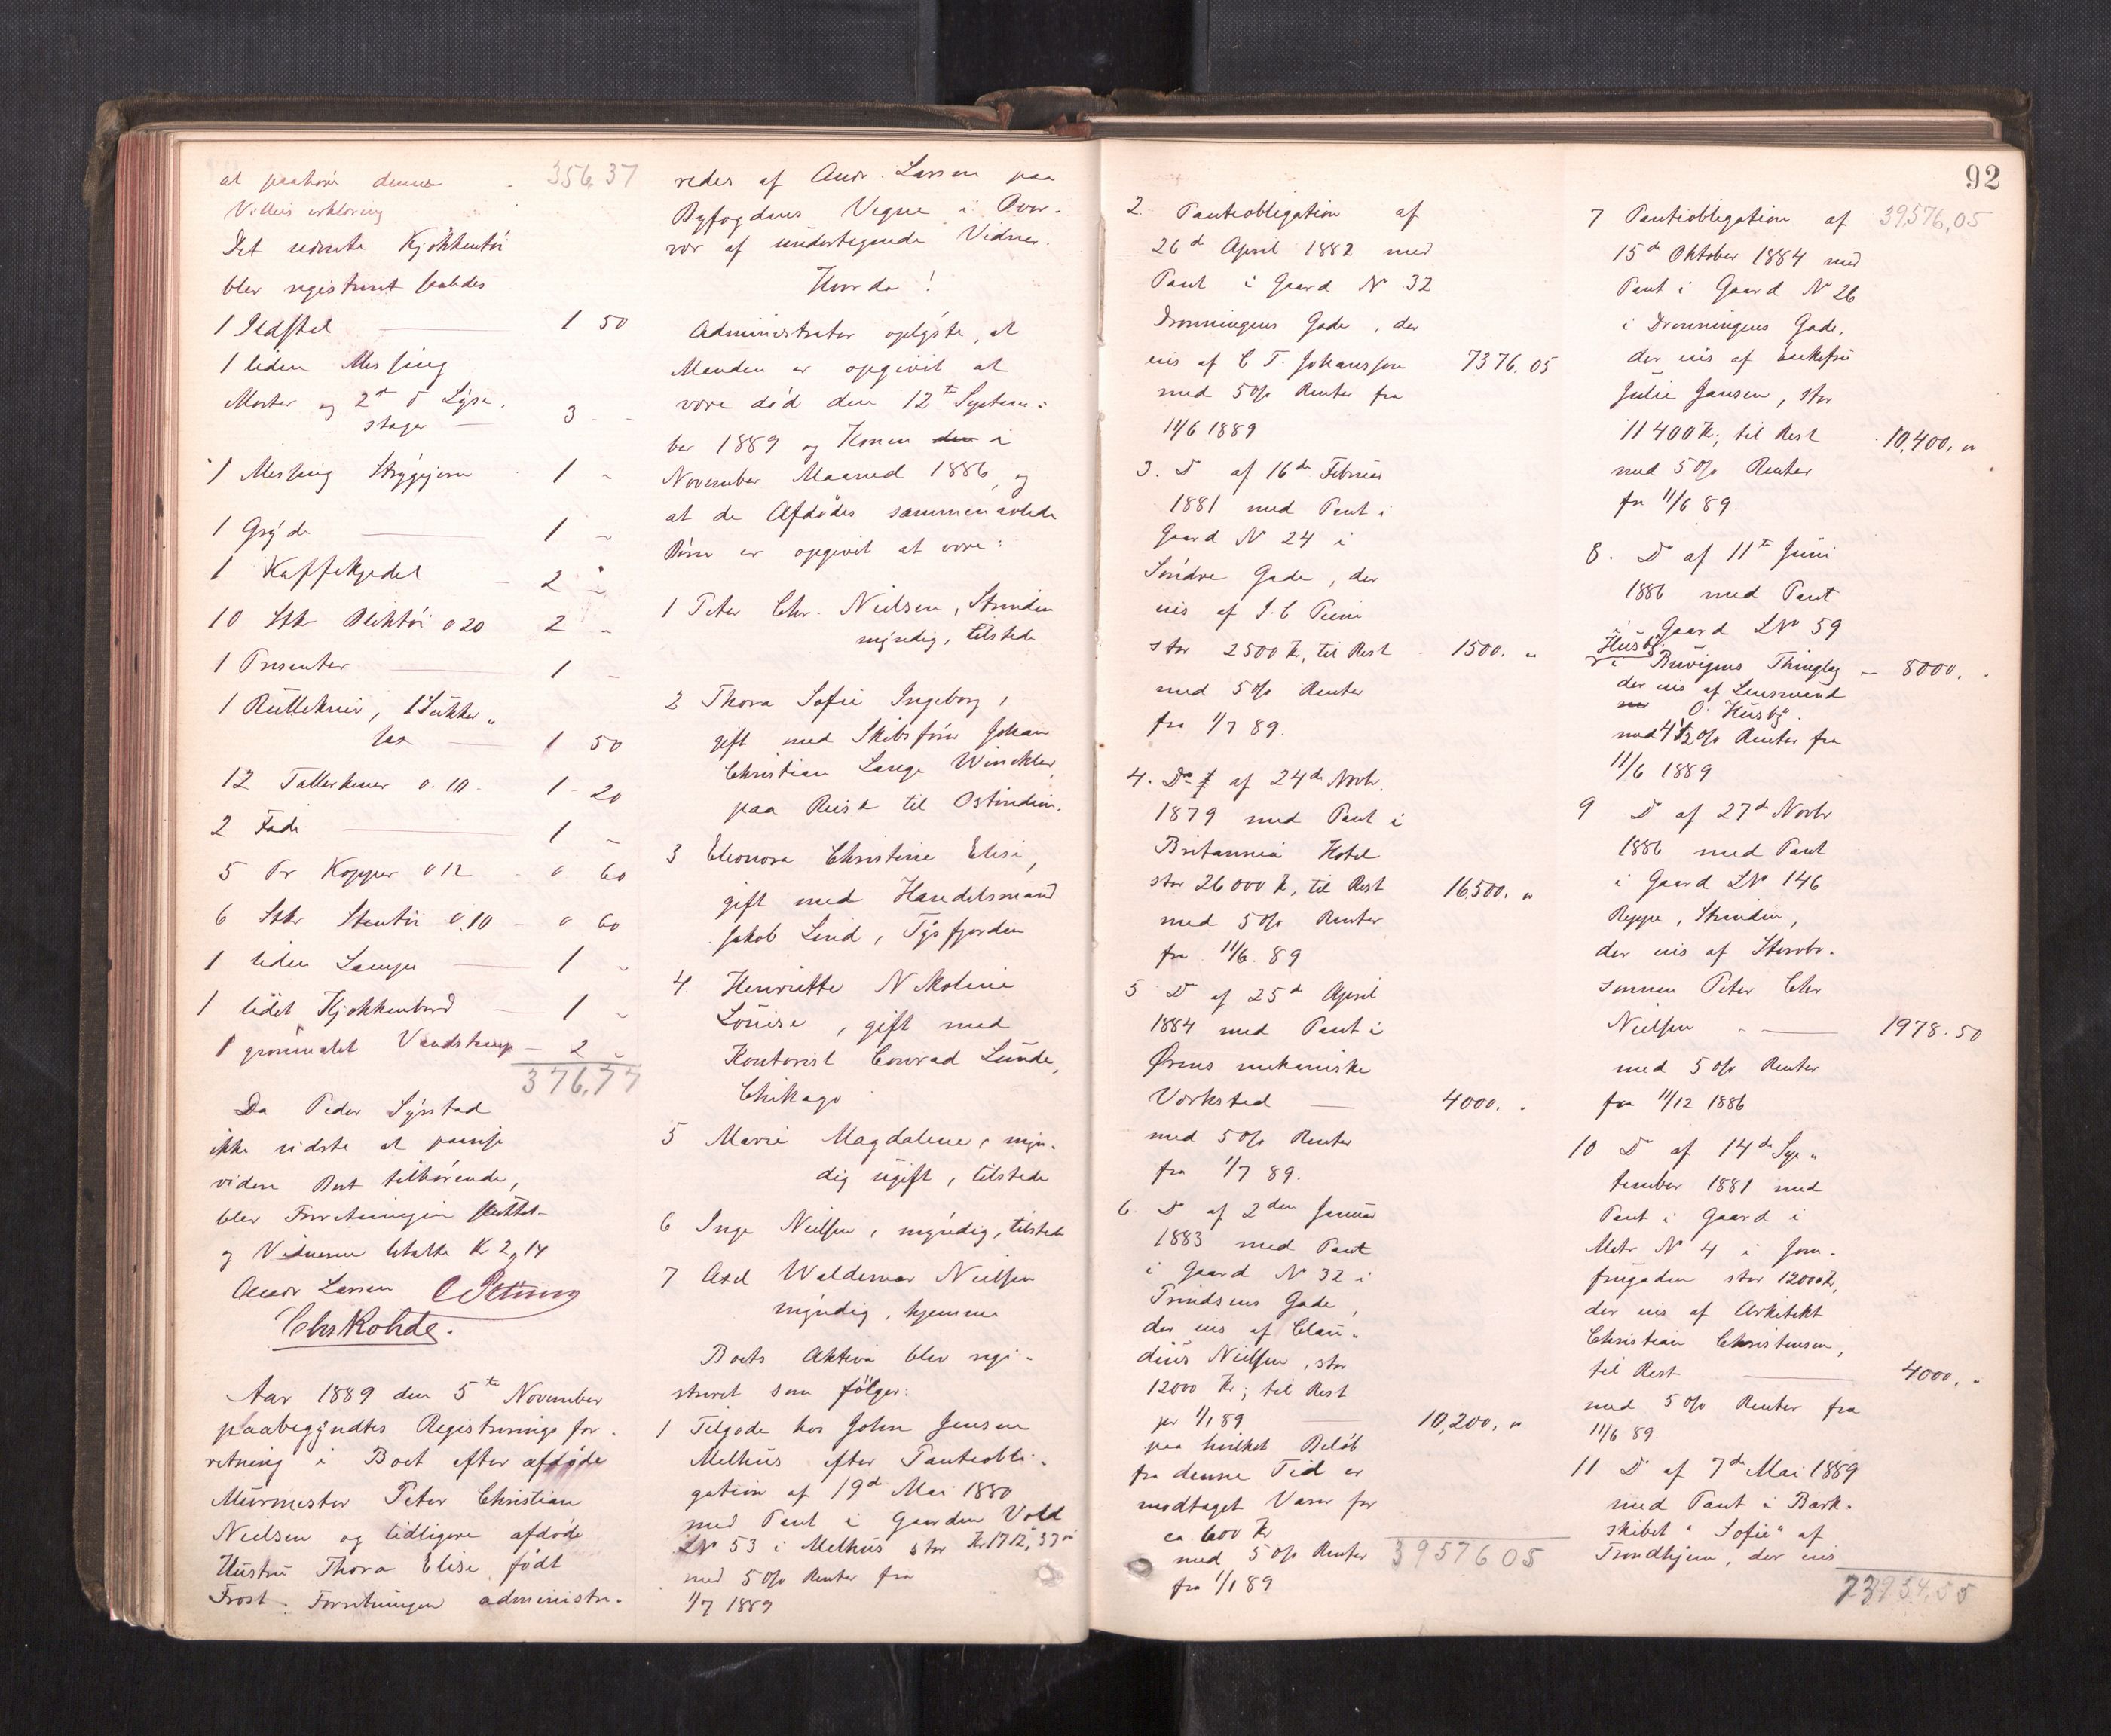 at paahøre denne - 356,37
Villies erklæring
Det nævnte Kjøkkentøi
blev registreret saaledes
1 Ildstel — 1 50
1 liden Messing
Morter og 2 do Lyse-
stager — 3 -
1 Messing Strygejern - 1 -
1 Gryde — 1 -
1 Kaffekjedel - 2 -
10 Stk Bliktøi o 20 2 -
1 Presenter — 1 -
1 Rullekniv, 1 Sukker-
sax — 1 50
12 Tallerkener o. 10 - 1 - 20
2 Fade — 1 -
5 Pr Kopper o 12 - o 60
6 Stkr Stentøi o.10 - o 60
1 liden Lampe — 1 -
1 lidet Kjøkkenbord — 1 -
1 grønmalet Vandstamp — 2 -
376,77
Da Peder Lysstad
ikke vidste at paavise
videre Boet tilhørende,
blev Forretningen sluttet
og Vidnerne betalte K 2,14
Andr Larsen
Chr Rohde.
Aar 1889 den 5te November
paabegyndtes Registreringsfor-
retning i Boet efter afdøde
Murmester Peter Christian
Nielsen og tidligere afdøde
Hustru Thora Elise født
Frost. Forretningen administre-
redes af Andr. Larsen paa
Byfogdens Vegne i Over-
vær af undertegnede Vidner.
Hvorda!
Administrator oplyste, at
Manden er opgivet at
være død den 12te Septem-
ber 1889 og Konen den i
November Maaned 1886, og
at de Afdødes sammenavlede
Børn er opgivet at være:
1 Peter Chr. Nielsen, Strinden
myndig, tilstede
2 Thora Sofie Ingeborg,
gift med Skibsfører Johan
Christian Lange Winckler,
paa Reise til Ostindien.
3 Eleonora Christine Elise,
gift med Handelsmand
Jakob Lind, Tysfjorden
4. Henriette Nikoline
Louise, gift med
Kontorist Conrad Lunde,
Chikago
5 Marie Magdalene, myn-
dig ugift, tilstede
6 Inge Nielsen, myndig, tilstede
7 Axel Waldemar Nielsen
myndig, hjemme
Boets Aktiva blev regi-
streret som følger:
1 Tilgode hos John Jensen
Melhus efter Panteobli-
gation af 19de Mai 1880
med Pant i Gaarden Vold
LNo 53 i Melhus stor Kr 1712,37
med 5 0/0 Renter fra
1/7 1889
92
2. Panteobligation af
26de April 1882 med
Pant i Gaard No 32
Dronningens Gade, der
eies af C T. Johansson 7376.05
med 5 0/0 Renter fra
11/6 1889
3. Do af 16de Februar
1881 med Pant i
Gaard No 24 i
Søndre Gade, der
eies af
stor 2500 Kr, til Rest - 1500. "
med 5 0/0 Renter
fra 1/7 89.
4. Do af 24de Novbr.
1879 med Pant i
Britannia Hotel
stor 26000 K, til Rest 16,500. "
med 5 0/0 Renter
fra 11/6. 89
5 Do af 25de April
1884 med Pant i
Ørens mekaniske
Værksted — 4000. "
med 5 0/0 Renter
fra 1/7 89.
6. Do af 2den Januar
1883 med Pant
i Gaard No 32 i
Prindsens Gade,
der eies af Clau-
dius Nielsen, stor
12000 Kr; til Rest
pr 1/1 89 — 10,200, "
paa hvilket Beløb
fra denne Tid er
modtaget Varer for
ca 600 Kr
med 5 0/0 Renter 39576 05
fra 1/1 89
7 Panteobligation af 39,576,05
15de Oktober 1884 med
Pant i Gaard No 26
i Dronningens Gade,
der eies af Enkefru
Julie Jansen, stor
11400 Kr; til Rest 10,400, "
med 5 0/0 Renter
fra 11/6 89.
8. Do af 11te Juni
1886 med Pant
i Gaard LNo 59
Husby
i Buvigens Thinglag — 8000, -
der eies af Lensmand
O. Husby.
med 4 1/2 0/0 Renter fra
11/6 1889
9 Do af 27de Novbr
1886 med Pant
i Gaard LNo 146
Reppe, Strinden,
der eies af Stervbo-
sønnen Peter Chr
Nielsen — 1978.50
med 5 0/0 Renter
fra 11/12 1886
10 Do af 14de Sep-
tember 1881 med
Pant i Gaard i
Matr No 4 i Jom-
frugaden stor 12000 Kr,
der eies af Arkitekt
Christian Christensen,
til Rest — 4000, "
med 5 0/0 Renter fra
11/6 89.
11 Do af 7de Mai 1889
med Pant i Bark-
skibet "Sofie" af
Trondhjem, der eies